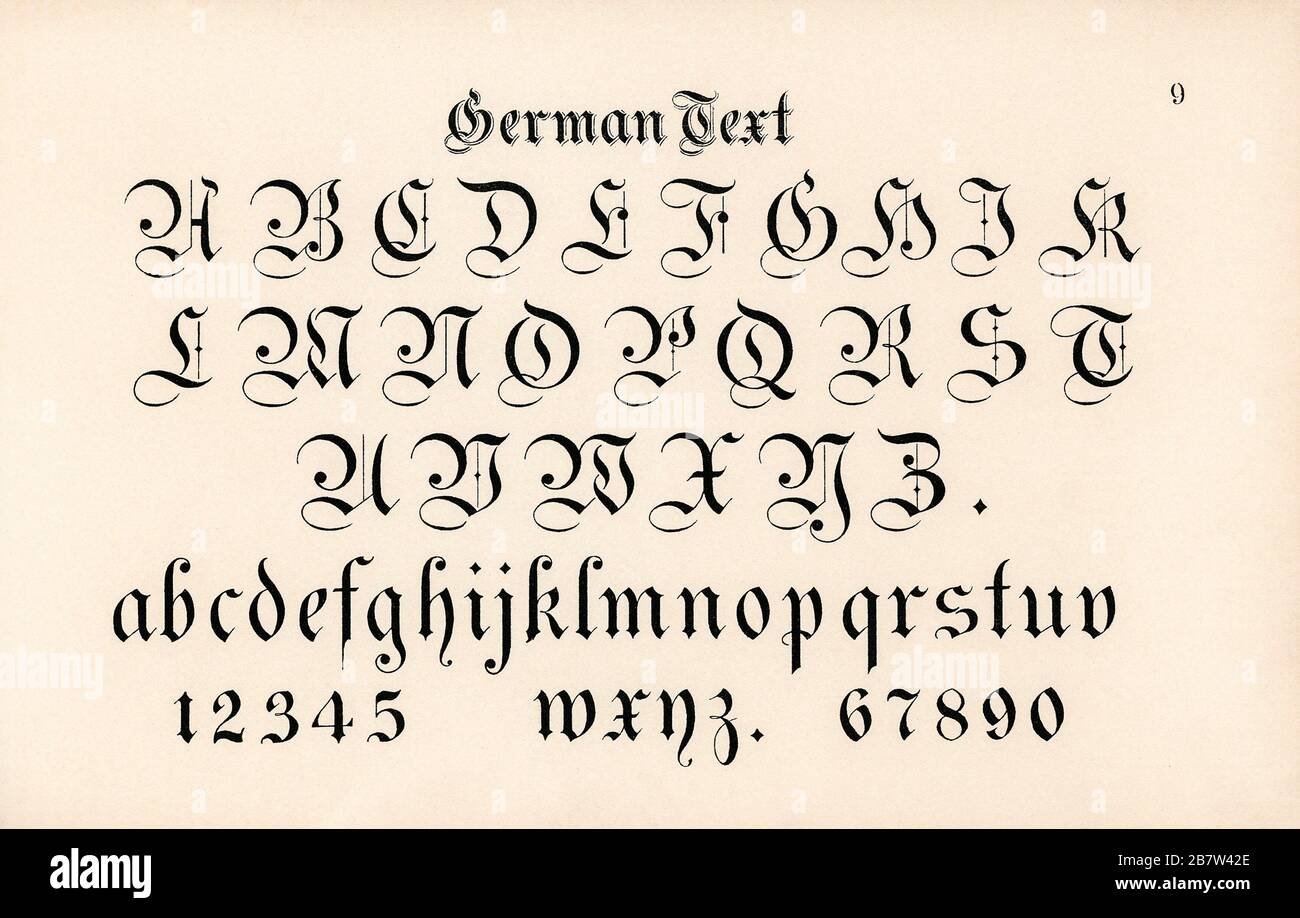 9
German Text
A B C D E F G H I K
L M N O P Q R S T
U V W X Y Z .
abcdefghijklmnopqrstuv
12345 wxyz. 67890
alamy
Image ID: 2B7W42E
www.alamy.com